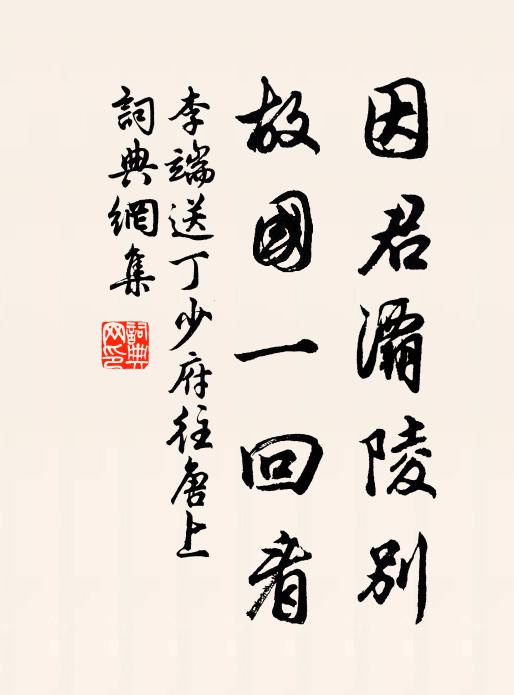 因君灞陵別
故國一回看
李端送丁少府往唐上
詞典網集
詞典網印